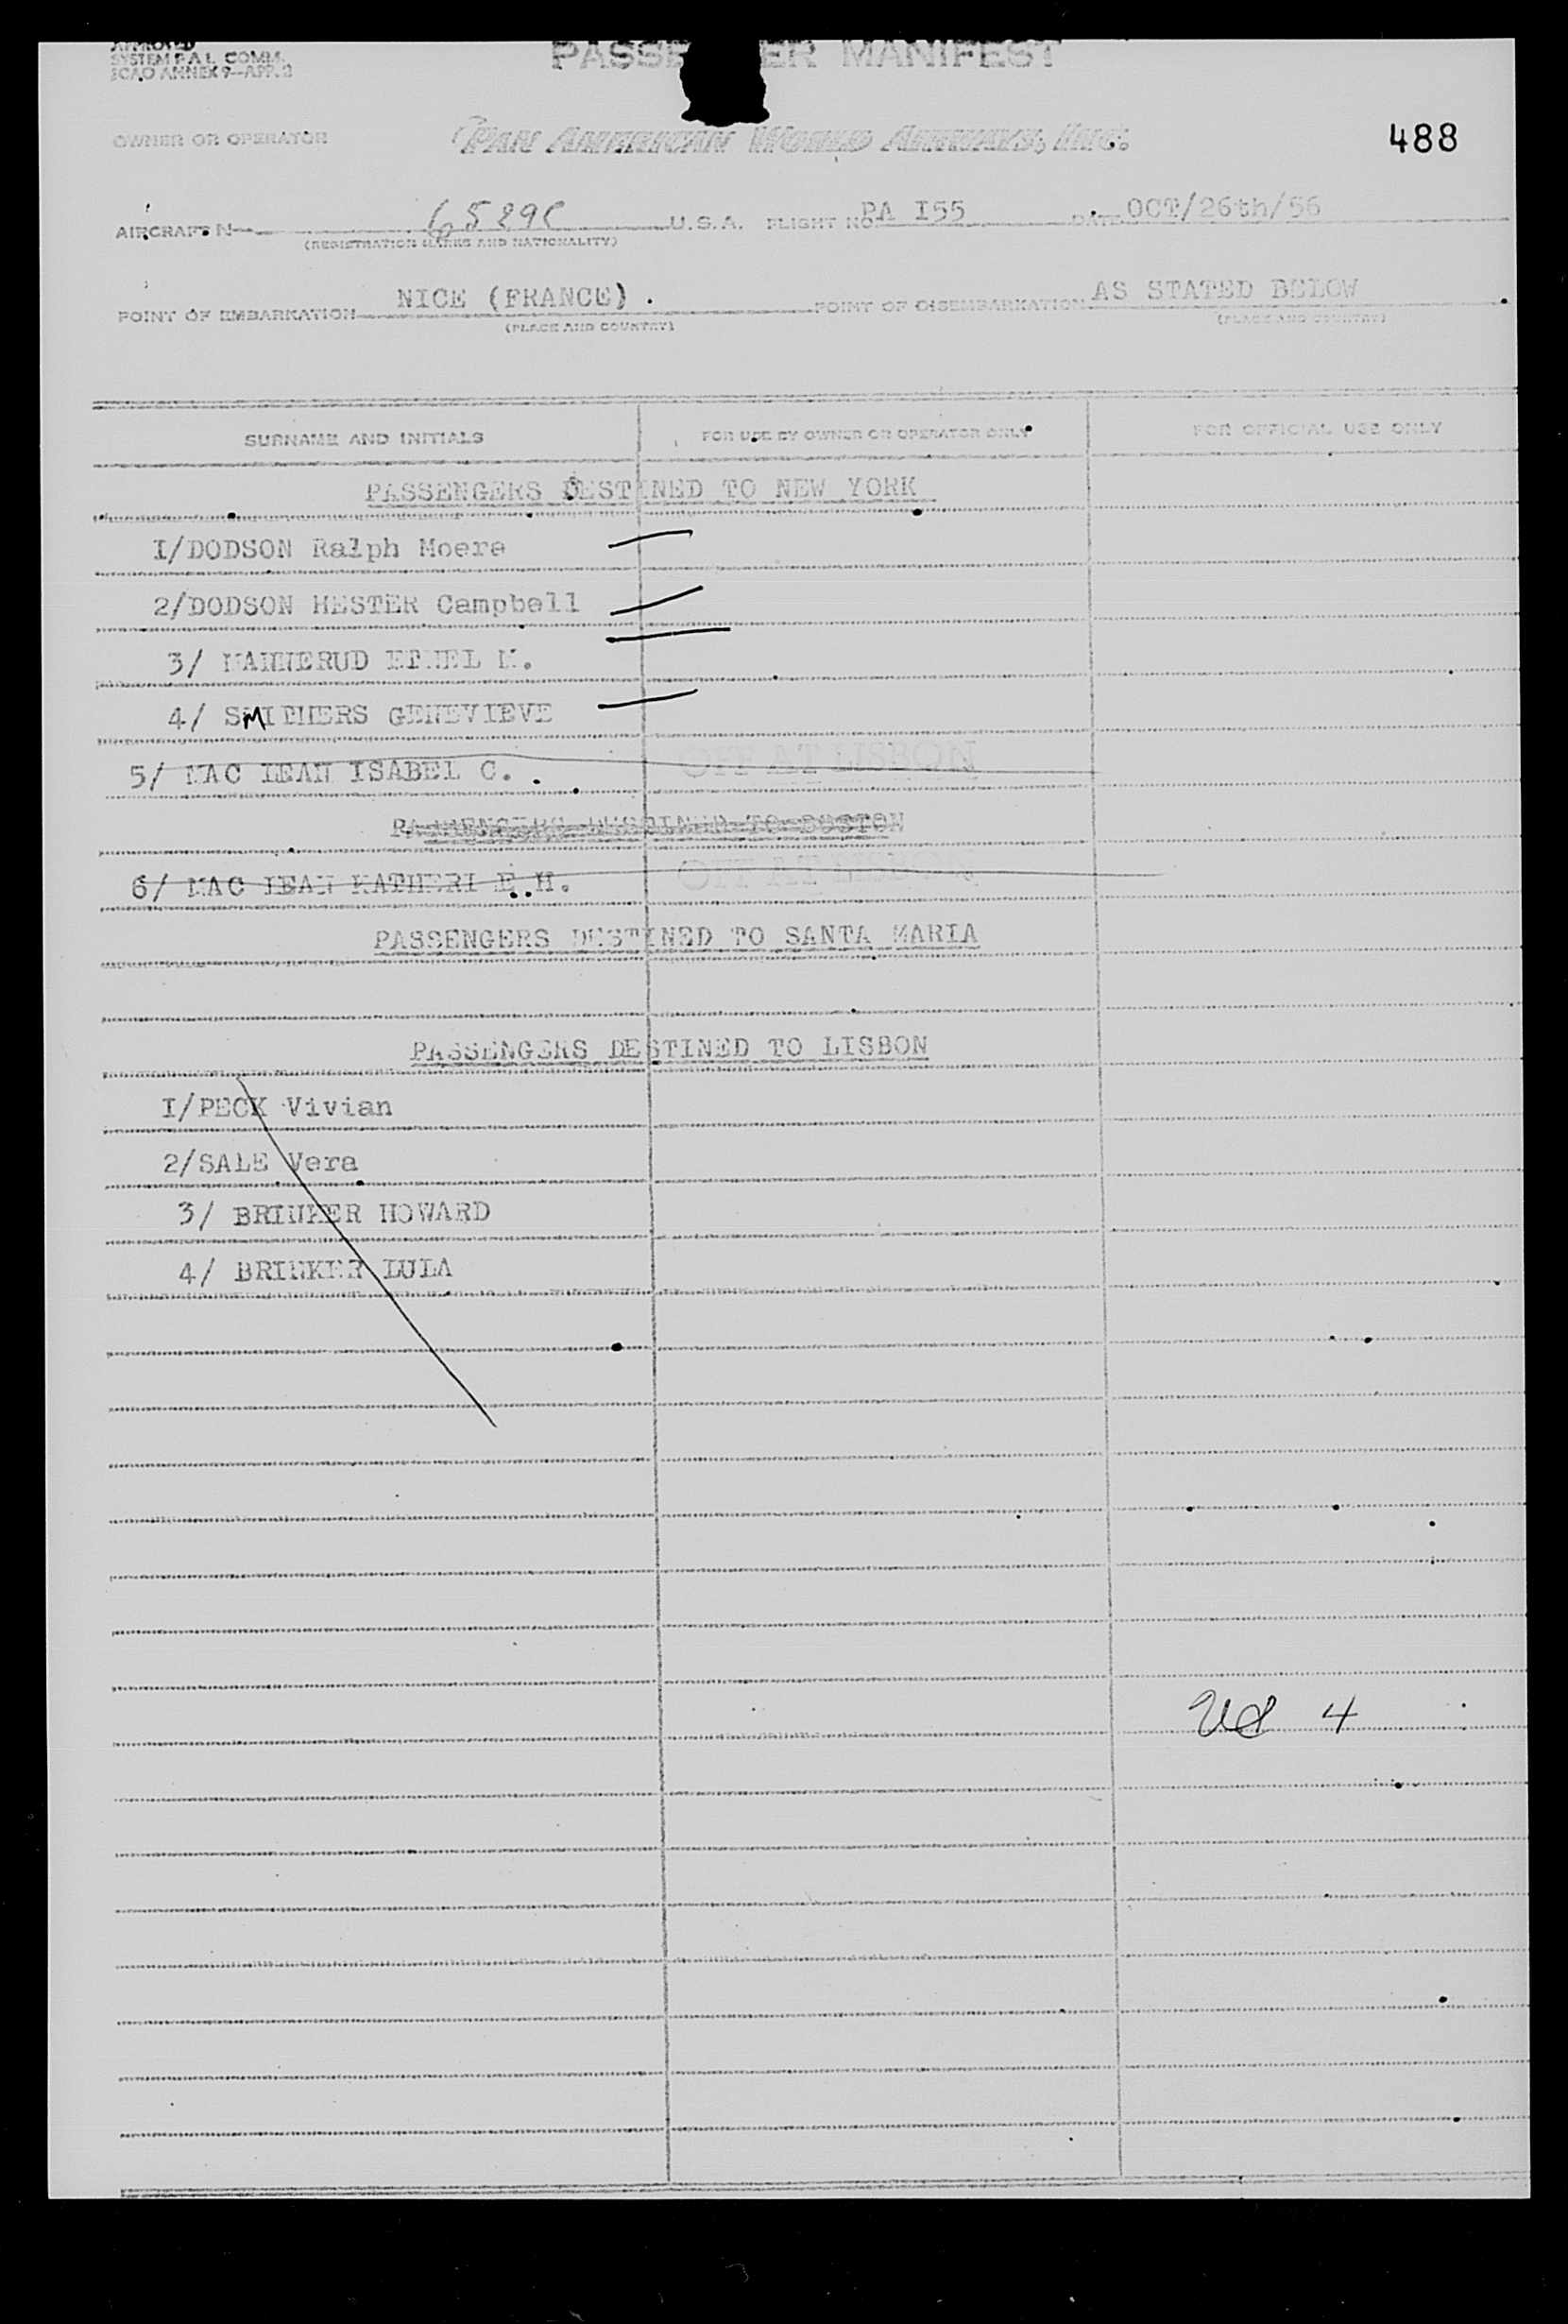 APPROVED
SYSTEM F.A.L. COMM.
ICAO ANNEX 9—APP. 2
MANIFEST
OWNER OR OPERATOR
PAN AMERICAN WORLD AIRWAYS, INC.
488
AIRCRAFT N— 6529C U.S.A. FLIGHT NO. PA I55 DATE OCT/26th/56
(REGISTRATION MARKS AND NATIONALITY)
POINT OF EMBARKATION NICE (FRANCE) . POINT OF DISEMBARKATION AS STATED BELOW
(PLACE AND COUNTRY) (PLACE AND COUNTRY)
SURNAME AND INITIALS FOR USE BY OWNER OR OPERATOR ONLY FOR OFFICIAL USE ONLY
PASSENGERS DESTINED TO NEW YORK
I/DODSON Ralph Moere
2/DODSON HESTER Campbell
3/
4/ SMITHERS GENEVIEVE
5/ MAC LEAN ISABEL C. . OFF AT LISBON
PASSENGERS DESTINED TO BOSTON
6/ MAC LEAN H. OFF AT LISBON
PASSENGERS DESTINED TO SANTA MARIA
PASSENGERS DESTINED TO LISBON
I/PECK Vivian
2/SALE Vera
3/ BRINKER HOWARD
4/ BRINKER LULA
US 4